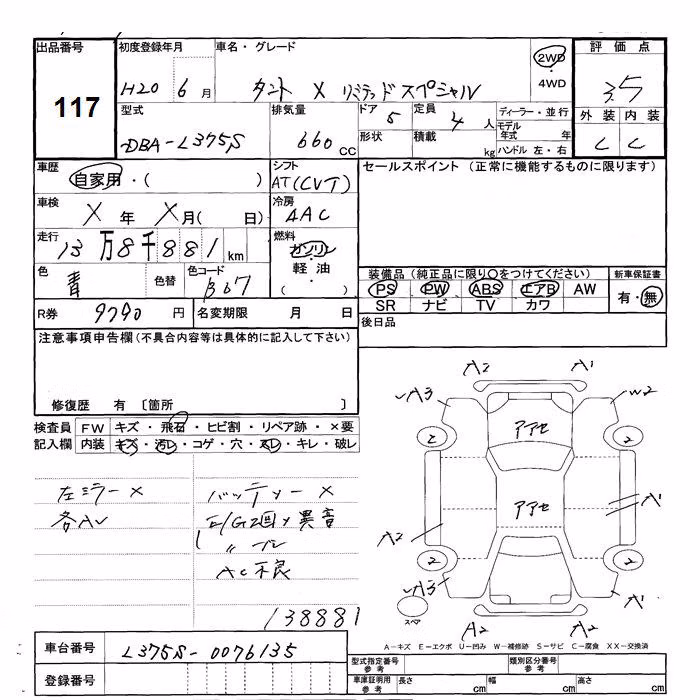 出品番号 初度登録年月 車名・グレード 2WD 評価点
117 H20 6月 タント X リミテッドスペシャル 4WD 3.5
型式 排気量 ドア 定員 ディーラー・並行 外装 内装
DBA-L375S 660cc 5 4人 モデル年式 年 C C
形状 積載 kg ハンドル 左・右
車歴 自家用・( ) シフト AT(CVT) セールスポイント (正常に機能するものに限ります)
車検 X年 X月( 日) 冷房 AAC
走行 13万8千881km 燃料 ガソリン・軽油・( )
色 青 色替 色コード B67 装備品(純正品に限り○をつけてください) 新車保証書
PS PW ABS エアB AW 有・無
SR ナビ TV カワ
R券 9790円 名変期限 月 日 後日品
注意事項申告欄(不具合内容等は具体的に記入して下さい)
修復歴 有 〔箇所 〕
検査員 FW キズ・飛石・ヒビ割・リペア跡・×要
記入欄 内装 キズ・汚レ・コゲ・穴・スレ・キレ・破レ
左ミラー× バッテリー×
各AU E/G2回× 異音
〃 ブレ
AC不良
138881
A2 A1
A3 W2
アアセ
2 2
アアセ
A1
A2
2 2
A3 A1
スペア A2 A2
A-キズ E-エクボ U-凹み W-補修跡 S-サビ C-腐食 XX-交換済
車台番号 L375S-0076135
登録番号
型式指定番号 参考 類別区分番号 参考
車庫証明用 参考 長さ cm 幅 cm 高さ cm